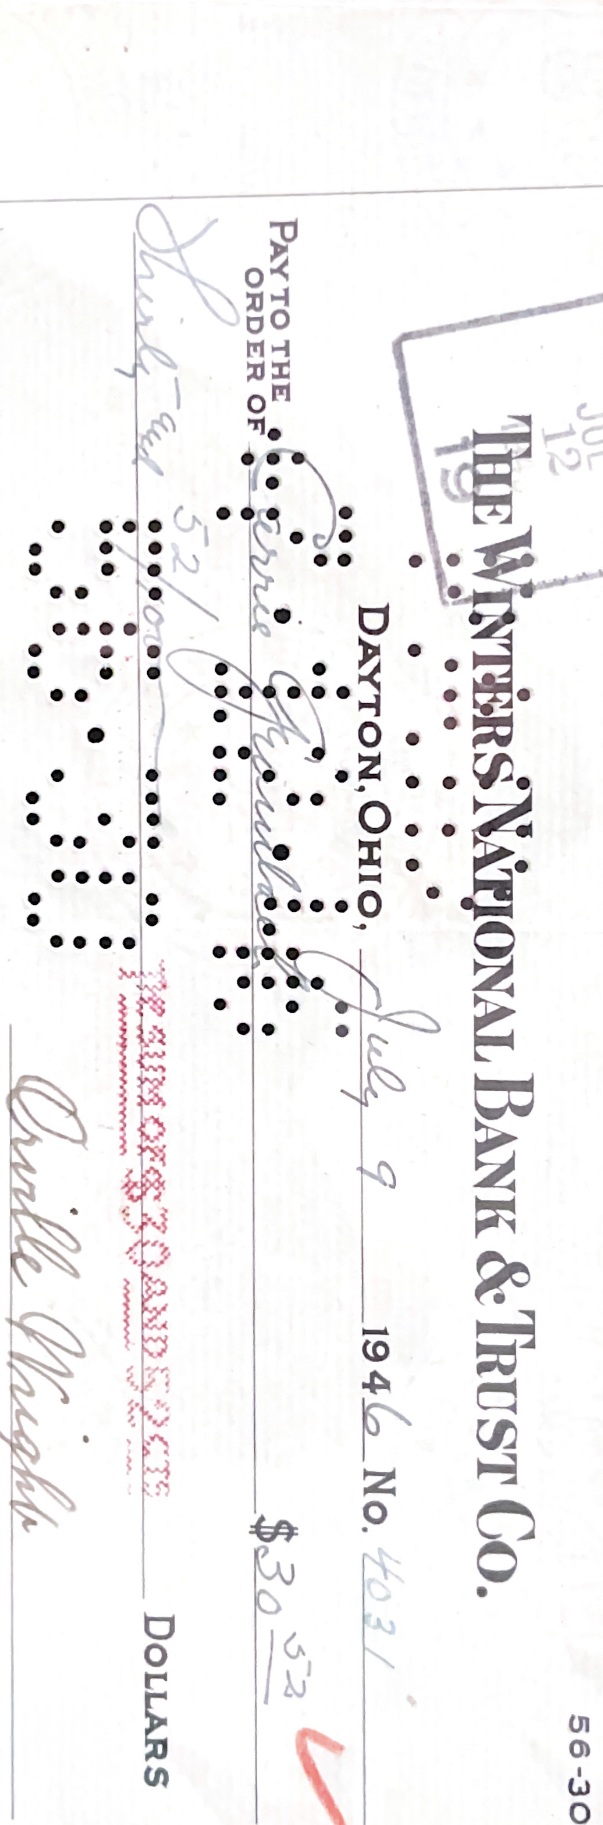 56-30
JUL
12
19
THE WINTERS NATIONAL BANK & TRUST CO.
PAID
DAYTON, OHIO, July 9 1946 No. 4031
PAY TO THE ORDER OF Carrie Grumbach $30 52
7.12.46
Thirty and 52/100 THE SUM OF $30 AND 52 CTS DOLLARS
56-30
Orville Wright